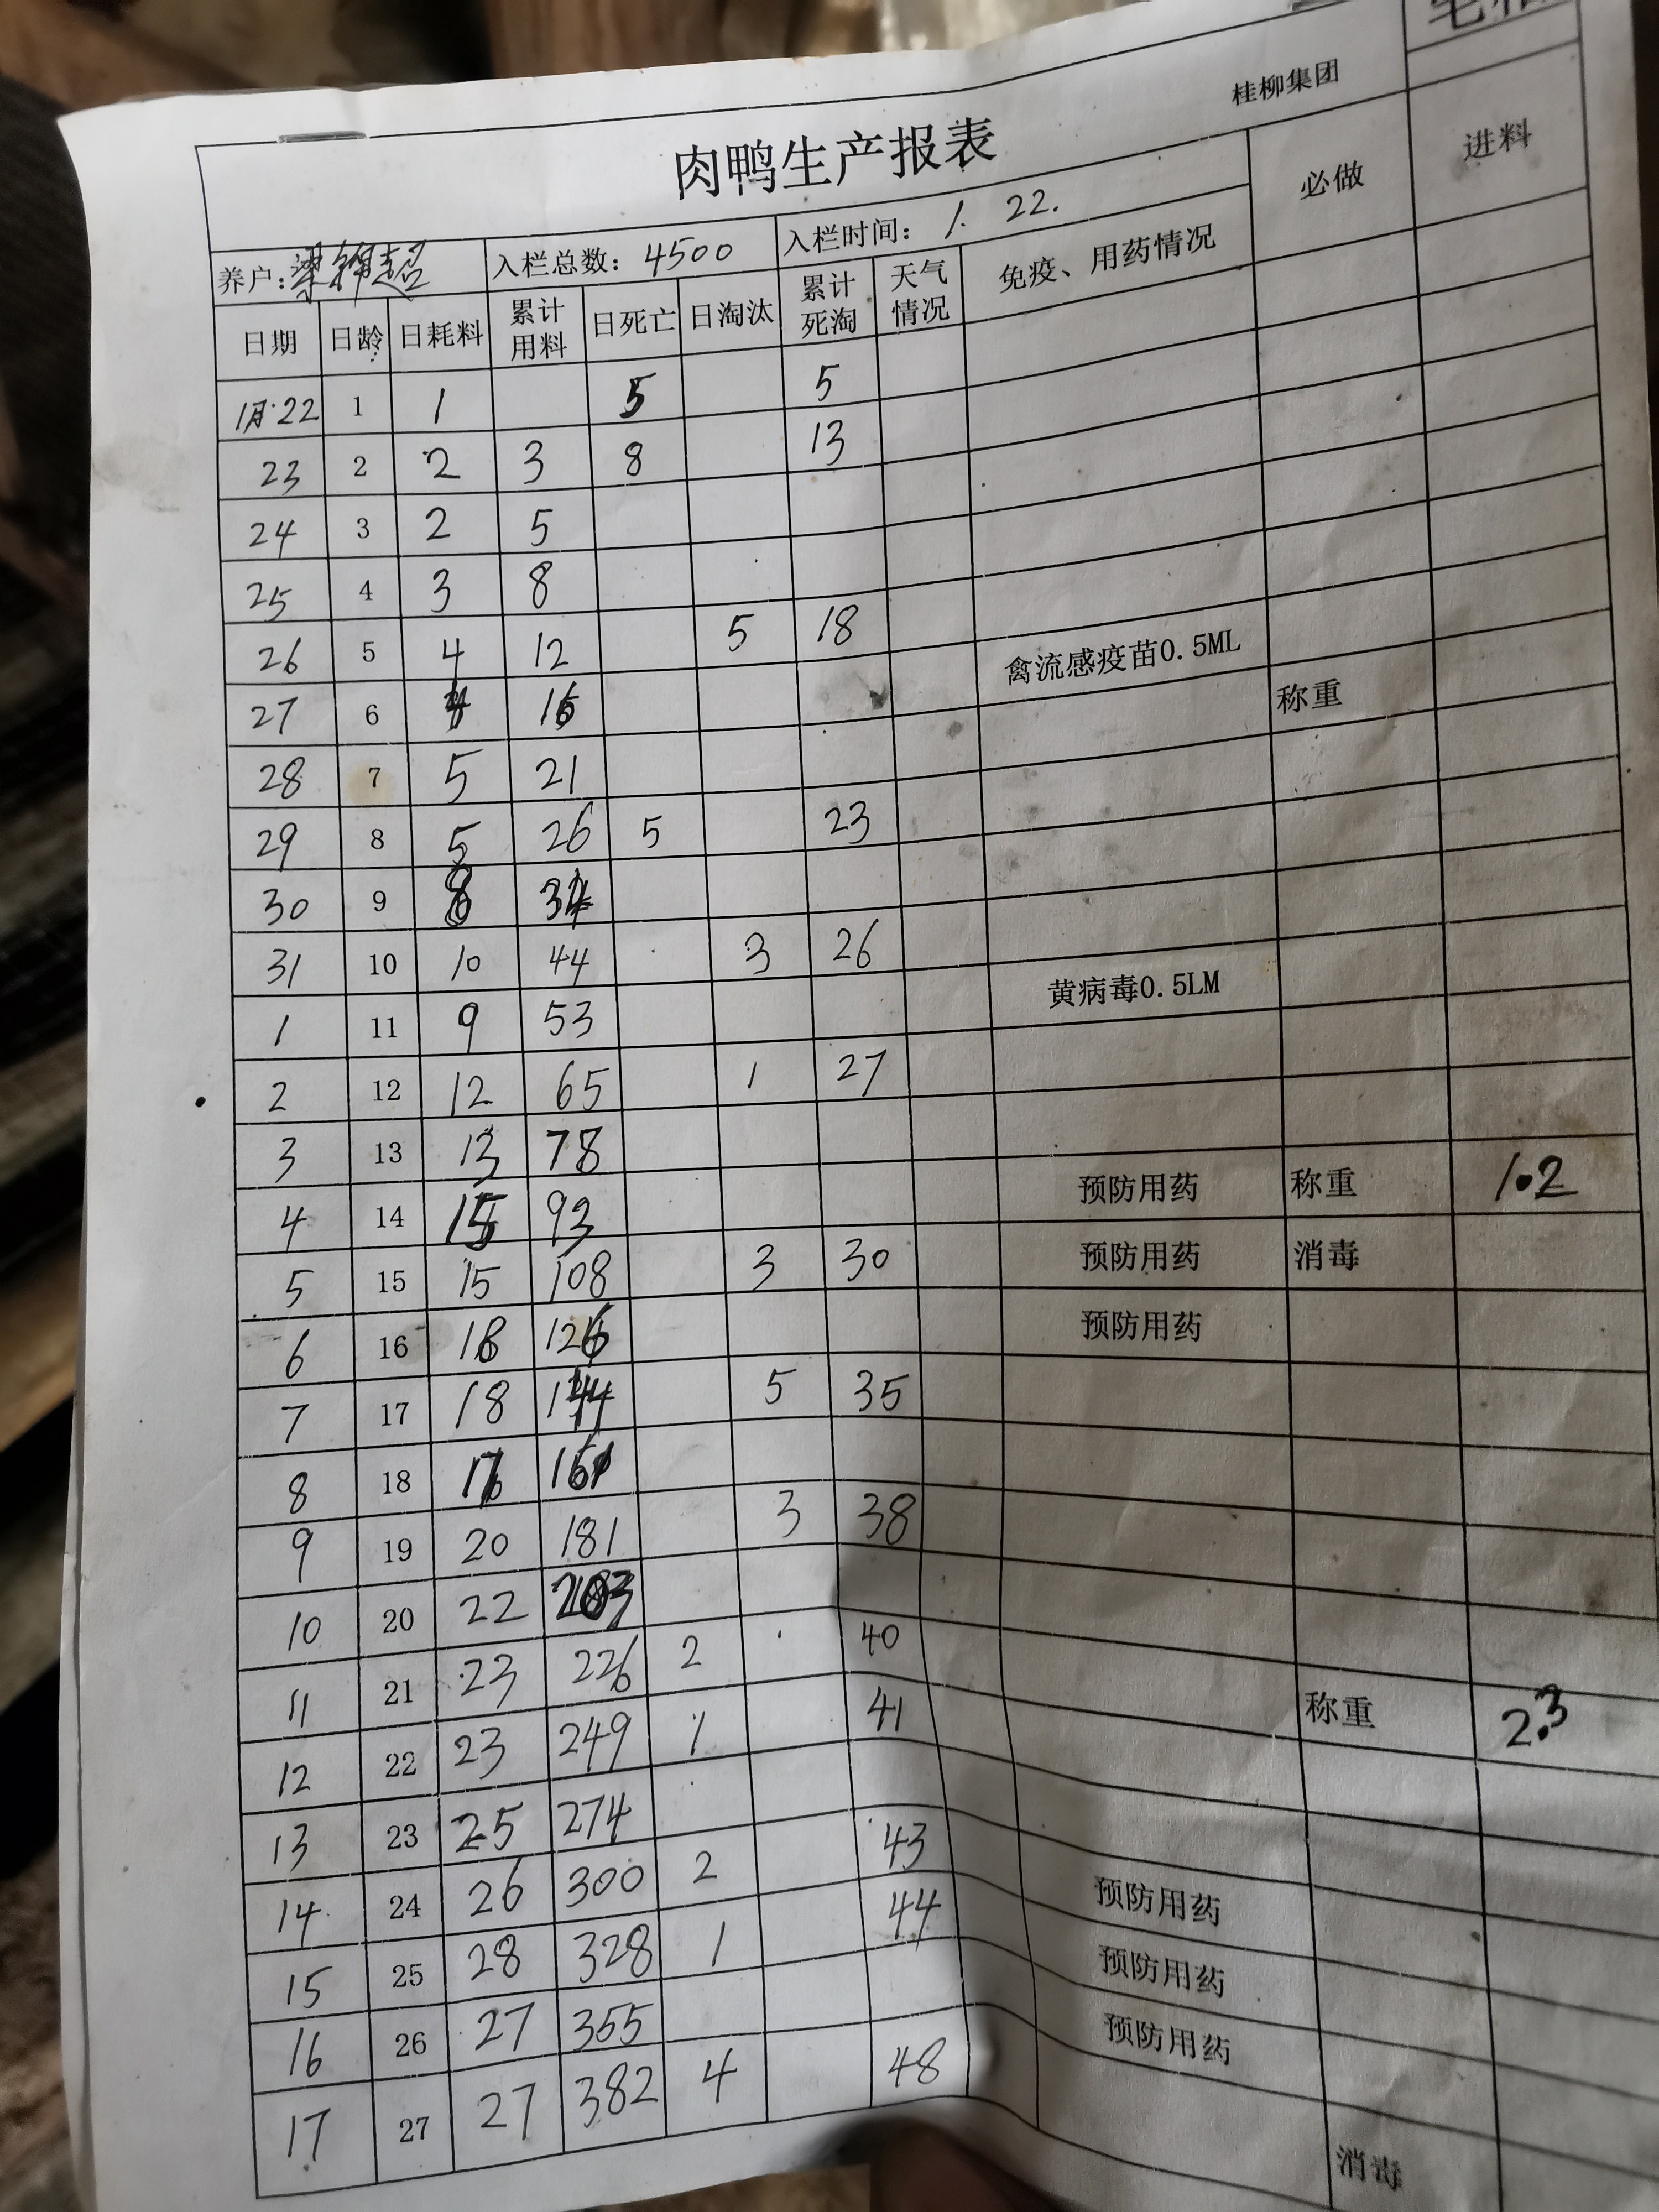 桂柳集团
肉鸭生产报表
养户: 入栏总数: 4500 入栏时间: 1. 22.
日期 日龄 日耗料 累计用料 日死亡 日淘汰 累计死淘 天气情况 免疫、用药情况 必做 进料
1月·22 1 1 5 5
23 2 2 3 8 13
24 3 2 5
25 4 3 8
26 5 4 12 5 18 禽流感疫苗0.5ML
27 6 4 16 称重
28 7 5 21
29 8 5 26 5 23
30 9 8 34
31 10 10 44 3 26 黄病毒0.5LM
1 11 9 53
2 12 12 65 1 27
3 13 13 78
4 14 15 93 预防用药 称重 1.2
5 15 15 108 3 30 预防用药 消毒
6 16 18 126 预防用药
7 17 18 144 5 35
8 18 17 161
9 19 20 181 3 38
10 20 22 203
11 21 23 226 2 40 称重 2.3
12 22 23 249 1 41
13 23 25 274
14 24 26 300 2 43 预防用药
15 25 28 328 1 44 预防用药
16 26 27 355 预防用药
17 27 27 382 4 48
消毒